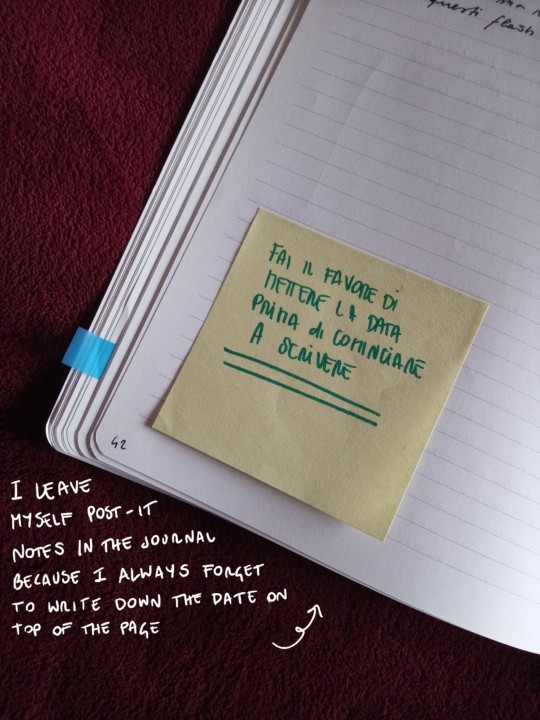 questi flash
FAI IL FAVORE DI
METTERE LA DATA
PRIMA di COMINCIARE
A SCRIVERE
42
I LEAVE
MYSELF POST-IT
NOTES IN THE JOURNAL
BECAUSE I ALWAYS FORGET
TO WRITE DOWN THE DATE ON
TOP OF THE PAGE